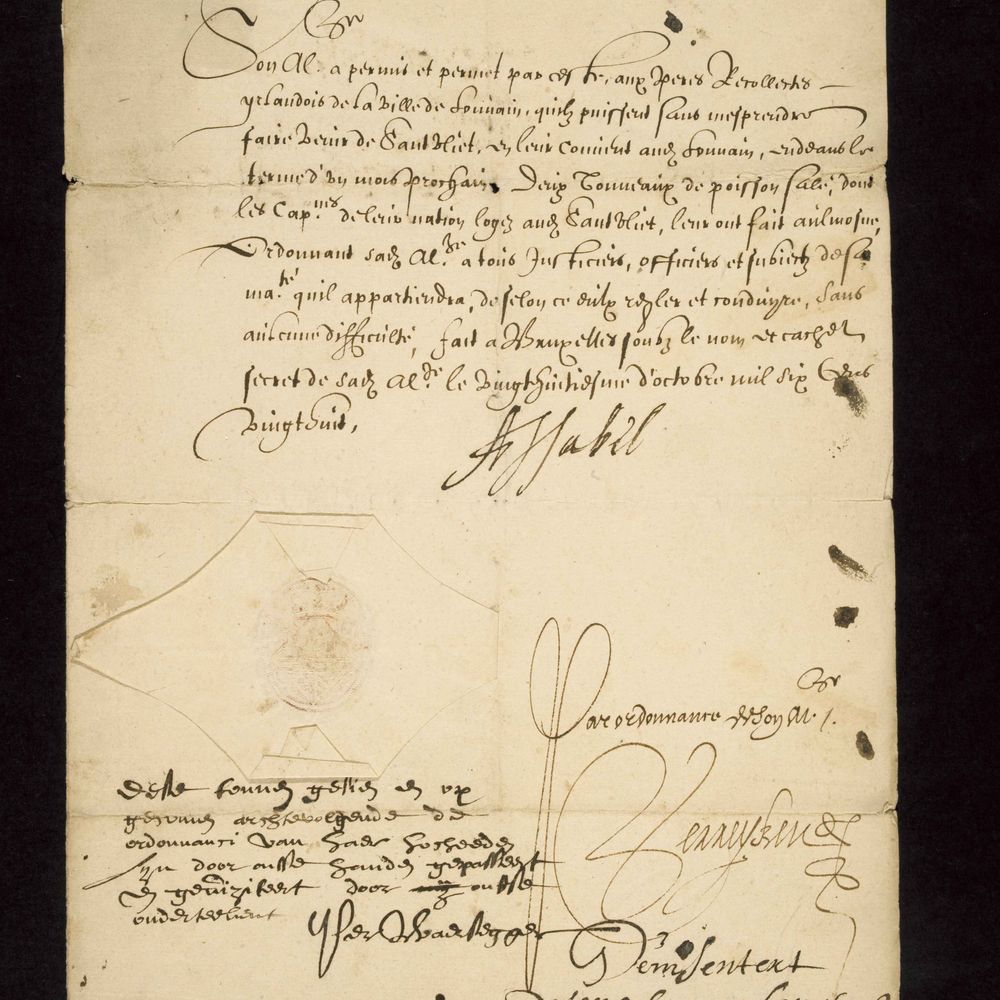 ze
Son Al. a permis et permet par ceste, aux Peres Recollectes
yrlandois de la Ville de Louvain, quilz puissent sans mesprendre
faire venir de Santvliet, en leur couvent audz Louvain, endeans le
terme d'un mois prochain, Deux Tonneaux de poisson salé, dont
les Cap.nes de leur nation logez audz Santvliet, leur ont fait aulmosne,
Ordonnant sadz Al.ze a tous Justiciers, officiers et subiectz de sa
ma.té quil appartiendra, de selon ce eulx regler et conduyre, sans
aulcune difficulté, fait a Bruxelles soubz le nom et cachet
secret de sadz Al.ze le vingthuictiesme d'octobre mil six Cens
vingthuit,
A Isabel
ze
Par ordonnance de son Al.
Verreyken
Dese tonnen gesien en op
achtervolgende de
ordonnanci van haer hocheeden
syn door onse handen gepasseert
en geviziteert door onsse
onderteekent